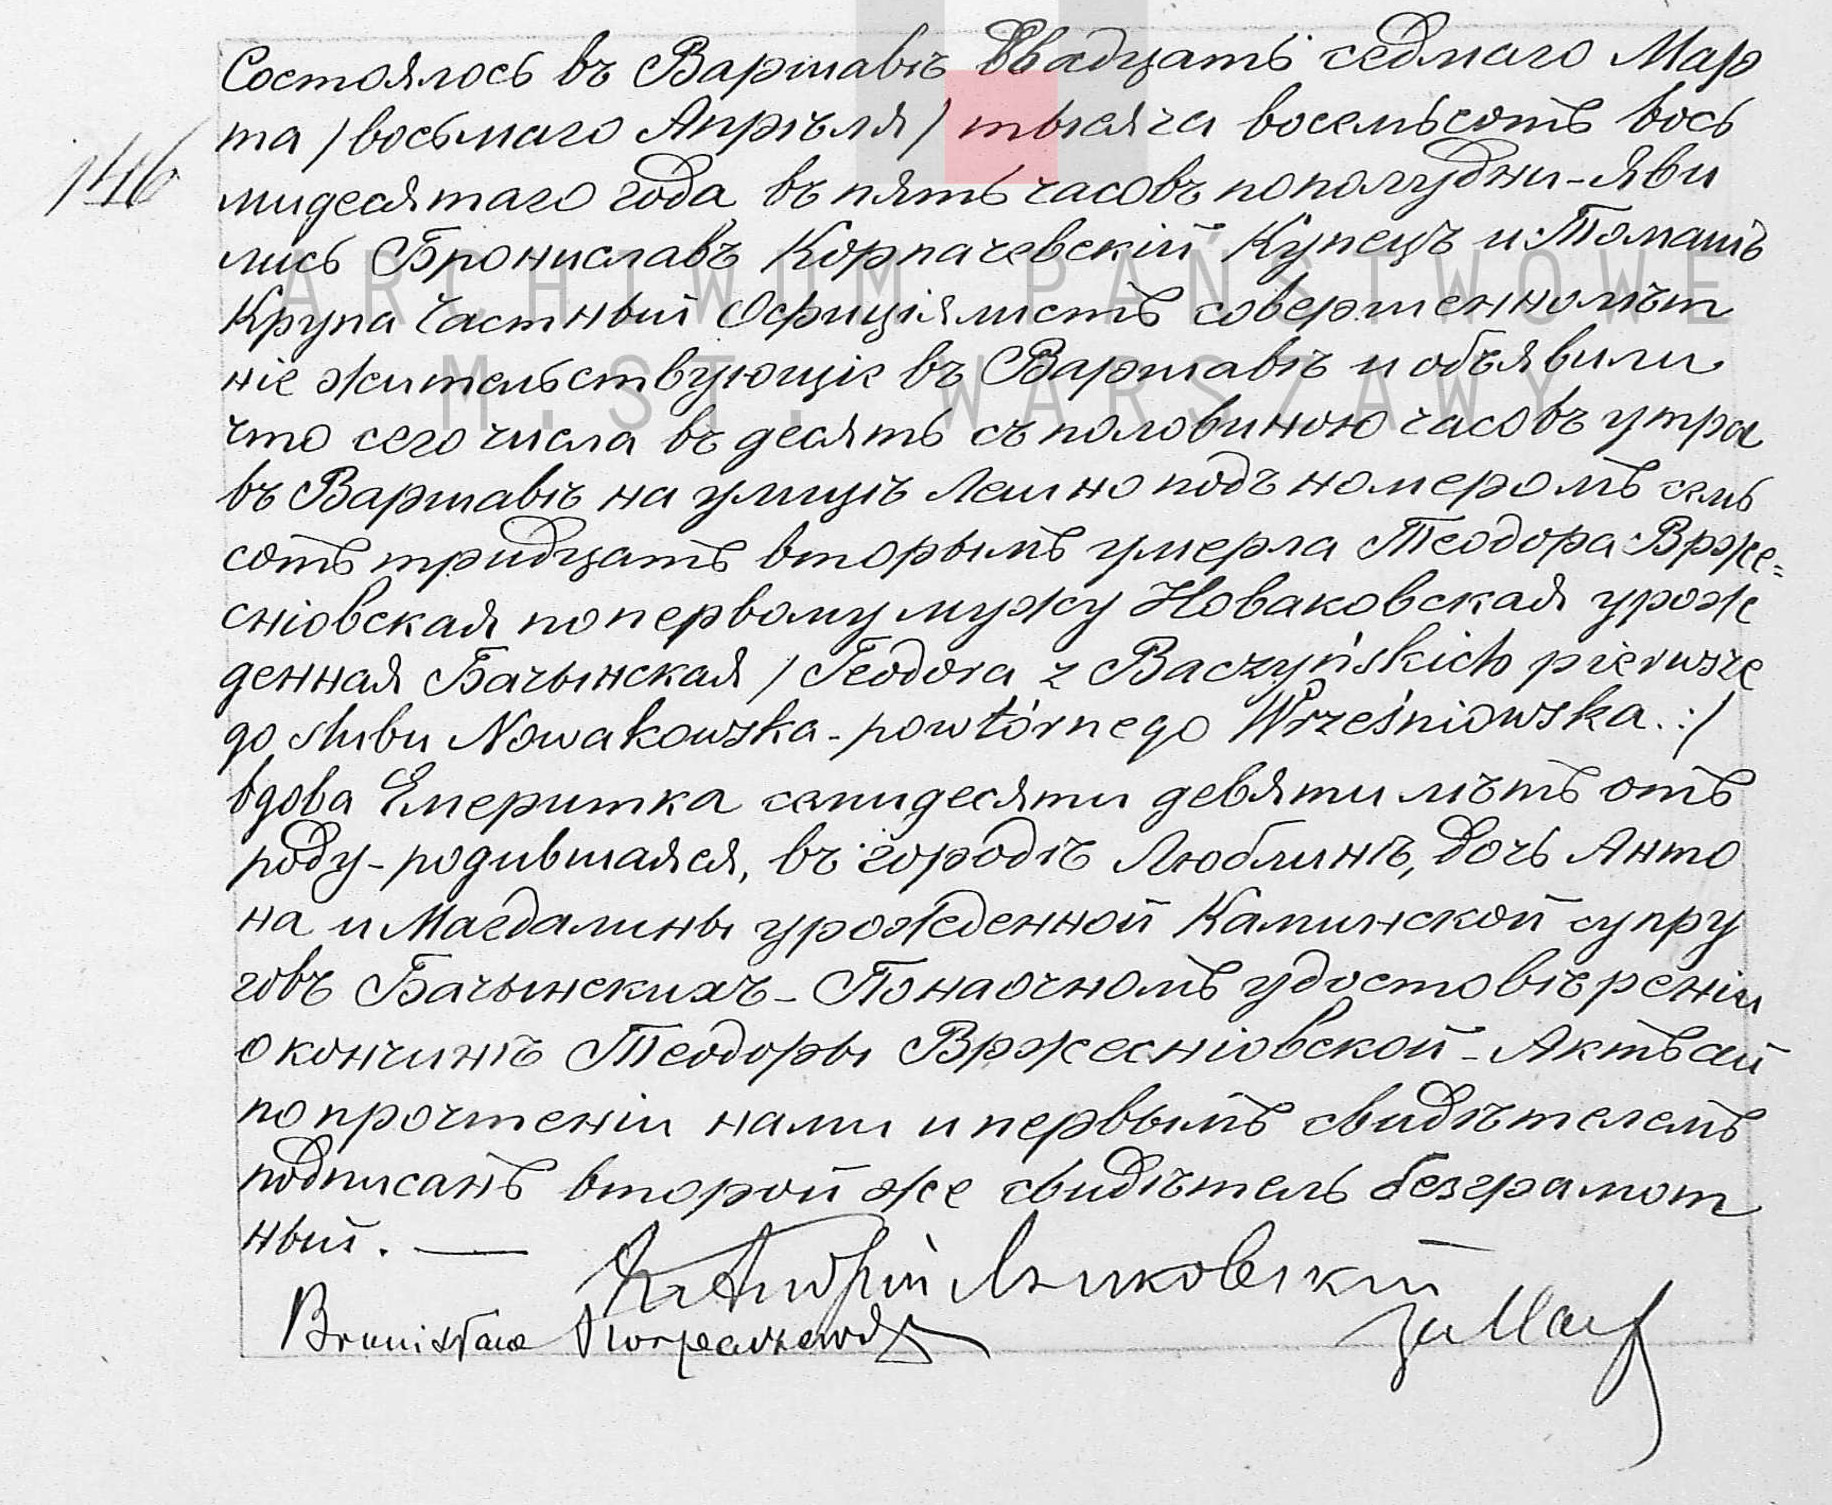 Состоялось въ Варшавѣ Двадцать седмаго Мар
та /восьмаго Апрѣля/ тысяча восемьсотъ вось
146
мидесятаго года въ пять часовъ пополудни - яви
лись Брониславъ Корпачевскій Купецъ и Томашъ
ARCHIWUM PAŃSTWOWE
Крупа Частный Официялистъ совершеннолѣт
M. ST. WARSZAWY
ніе жительствующіе въ Варшавѣ и объявили
что сего числа въ десять съ половиною часовъ утра
въ Варшавѣ на улицѣ Лешно подъ номеромъ семь
сотъ тридцать вторымъ умерла Теодора Врже=
сніовская по первому мужу Новаковская урож
денная Бачынская / Teodora z Baczyńskich pierwsze
go ślubu Nowakowska - powtórnego Wrześniowska .:/
вдова Емеритка семидесяти девяти лѣтъ отъ
роду - родившаяся, въ городѣ Люблинѣ, Дочь Анто
на и Магдалины урожденной Каминской супру
говъ Бачынскихъ - По наочномъ удостовѣреніи
о кончинѣ Теодоры Вржесніовской - Актъ сей
по прочтеніи нами и первымъ свидѣтелемъ
подписанъ второй же свидѣтель безграмот
ный. —
Кс Андрій
Bronisław